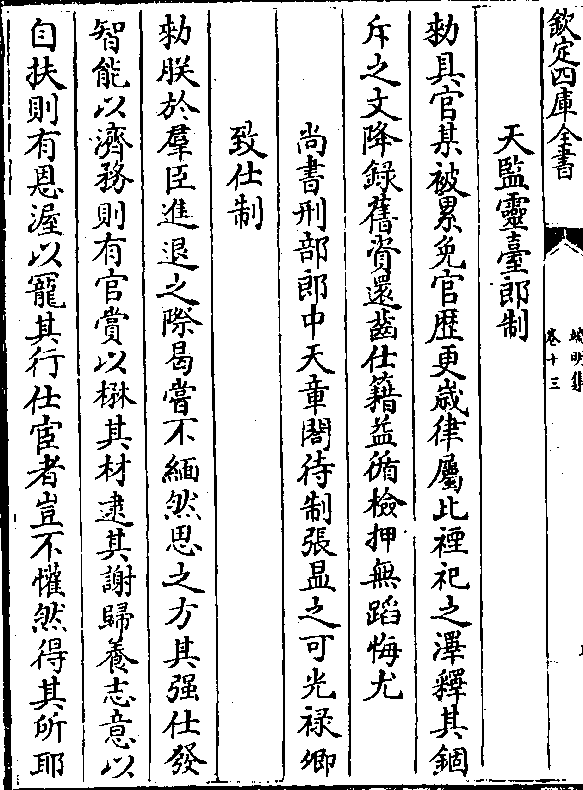 欽定四庫全書
端明集
卷十三
天監靈臺郎制
勅具官某被累免官歴更歳律屬此禋祀之澤釋其錮
斥之文降録舊資還齒仕籍益循檢押無蹈悔尤
尚書刑部郎中天章閣待制張昷之可光禄卿
致仕制
勅朕於羣臣進退之際曷嘗不緬然思之方其强仕發
智能以濟務則有官賞以楙其材逮其謝歸養志意以
自扶則有恩渥以寵其行仕宦者豈不懽然得其所耶